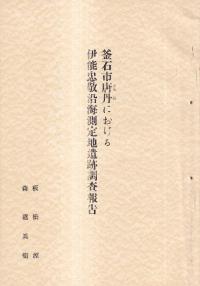 釜石市唐丹における
伊能忠敬沿海測定地遺跡調査報告
板橋源
森嘉兵衛